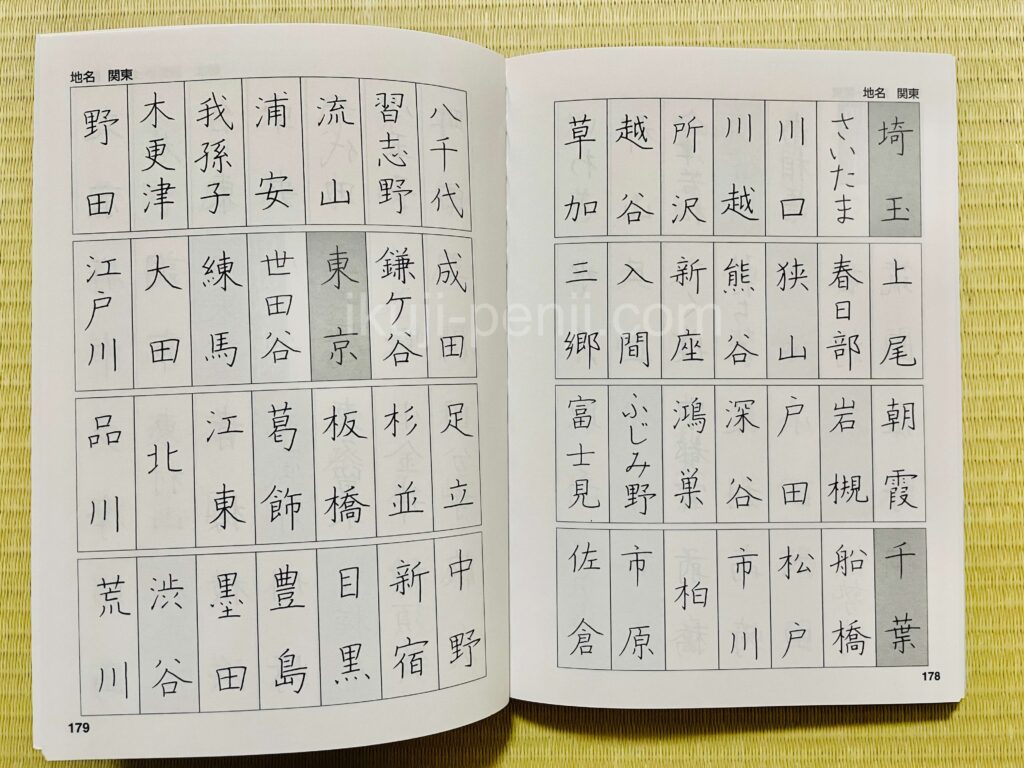 地名 関東
埼玉
さいたま
川口
川越
所沢
越谷
草加
上尾
春日部
狭山
熊谷
新座
入間
三郷
朝霞
岩槻
戸田
深谷
鴻巣
ふじみ野
富士見
千葉
船橋
松戸
市川
柏
市原
佐倉
178
地名 関東
八千代
習志野
流山
浦安
我孫子
木更津
野田
成田
鎌ケ谷
東京
世田谷
練馬
大田
江戸川
足立
杉並
板橋
葛飾
江東
北
品川
中野
新宿
目黒
豊島
墨田
渋谷
荒川
179
ikuji-penji.com